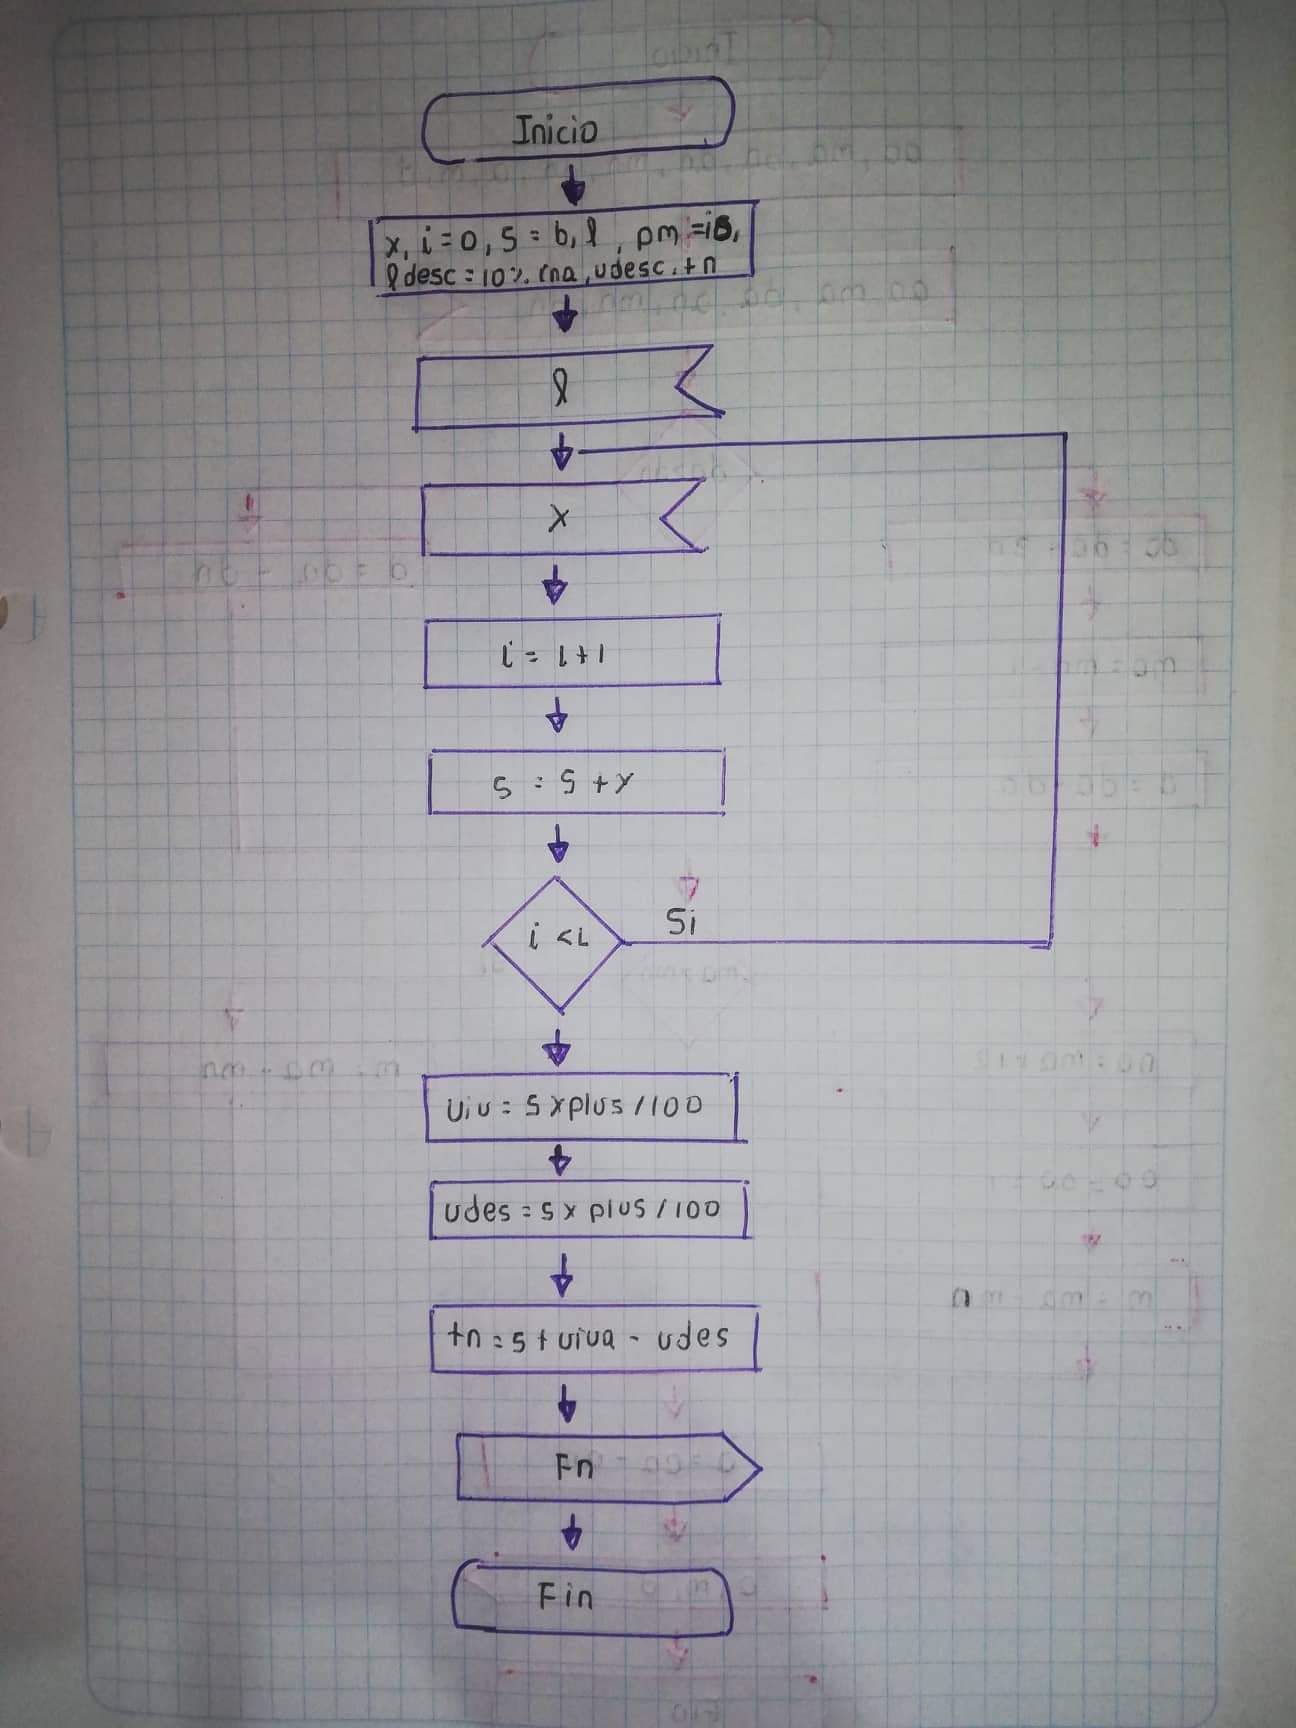 Inicio
x, i=0, S = b, l, pm =i
ldesc=10%, udesc. tn
l
x
i = i+1
S = S+x
i <L
Si
Uiu= S xplus/100
udes=S x plus/100
tn=S+uiva - udes
Fn
Fin